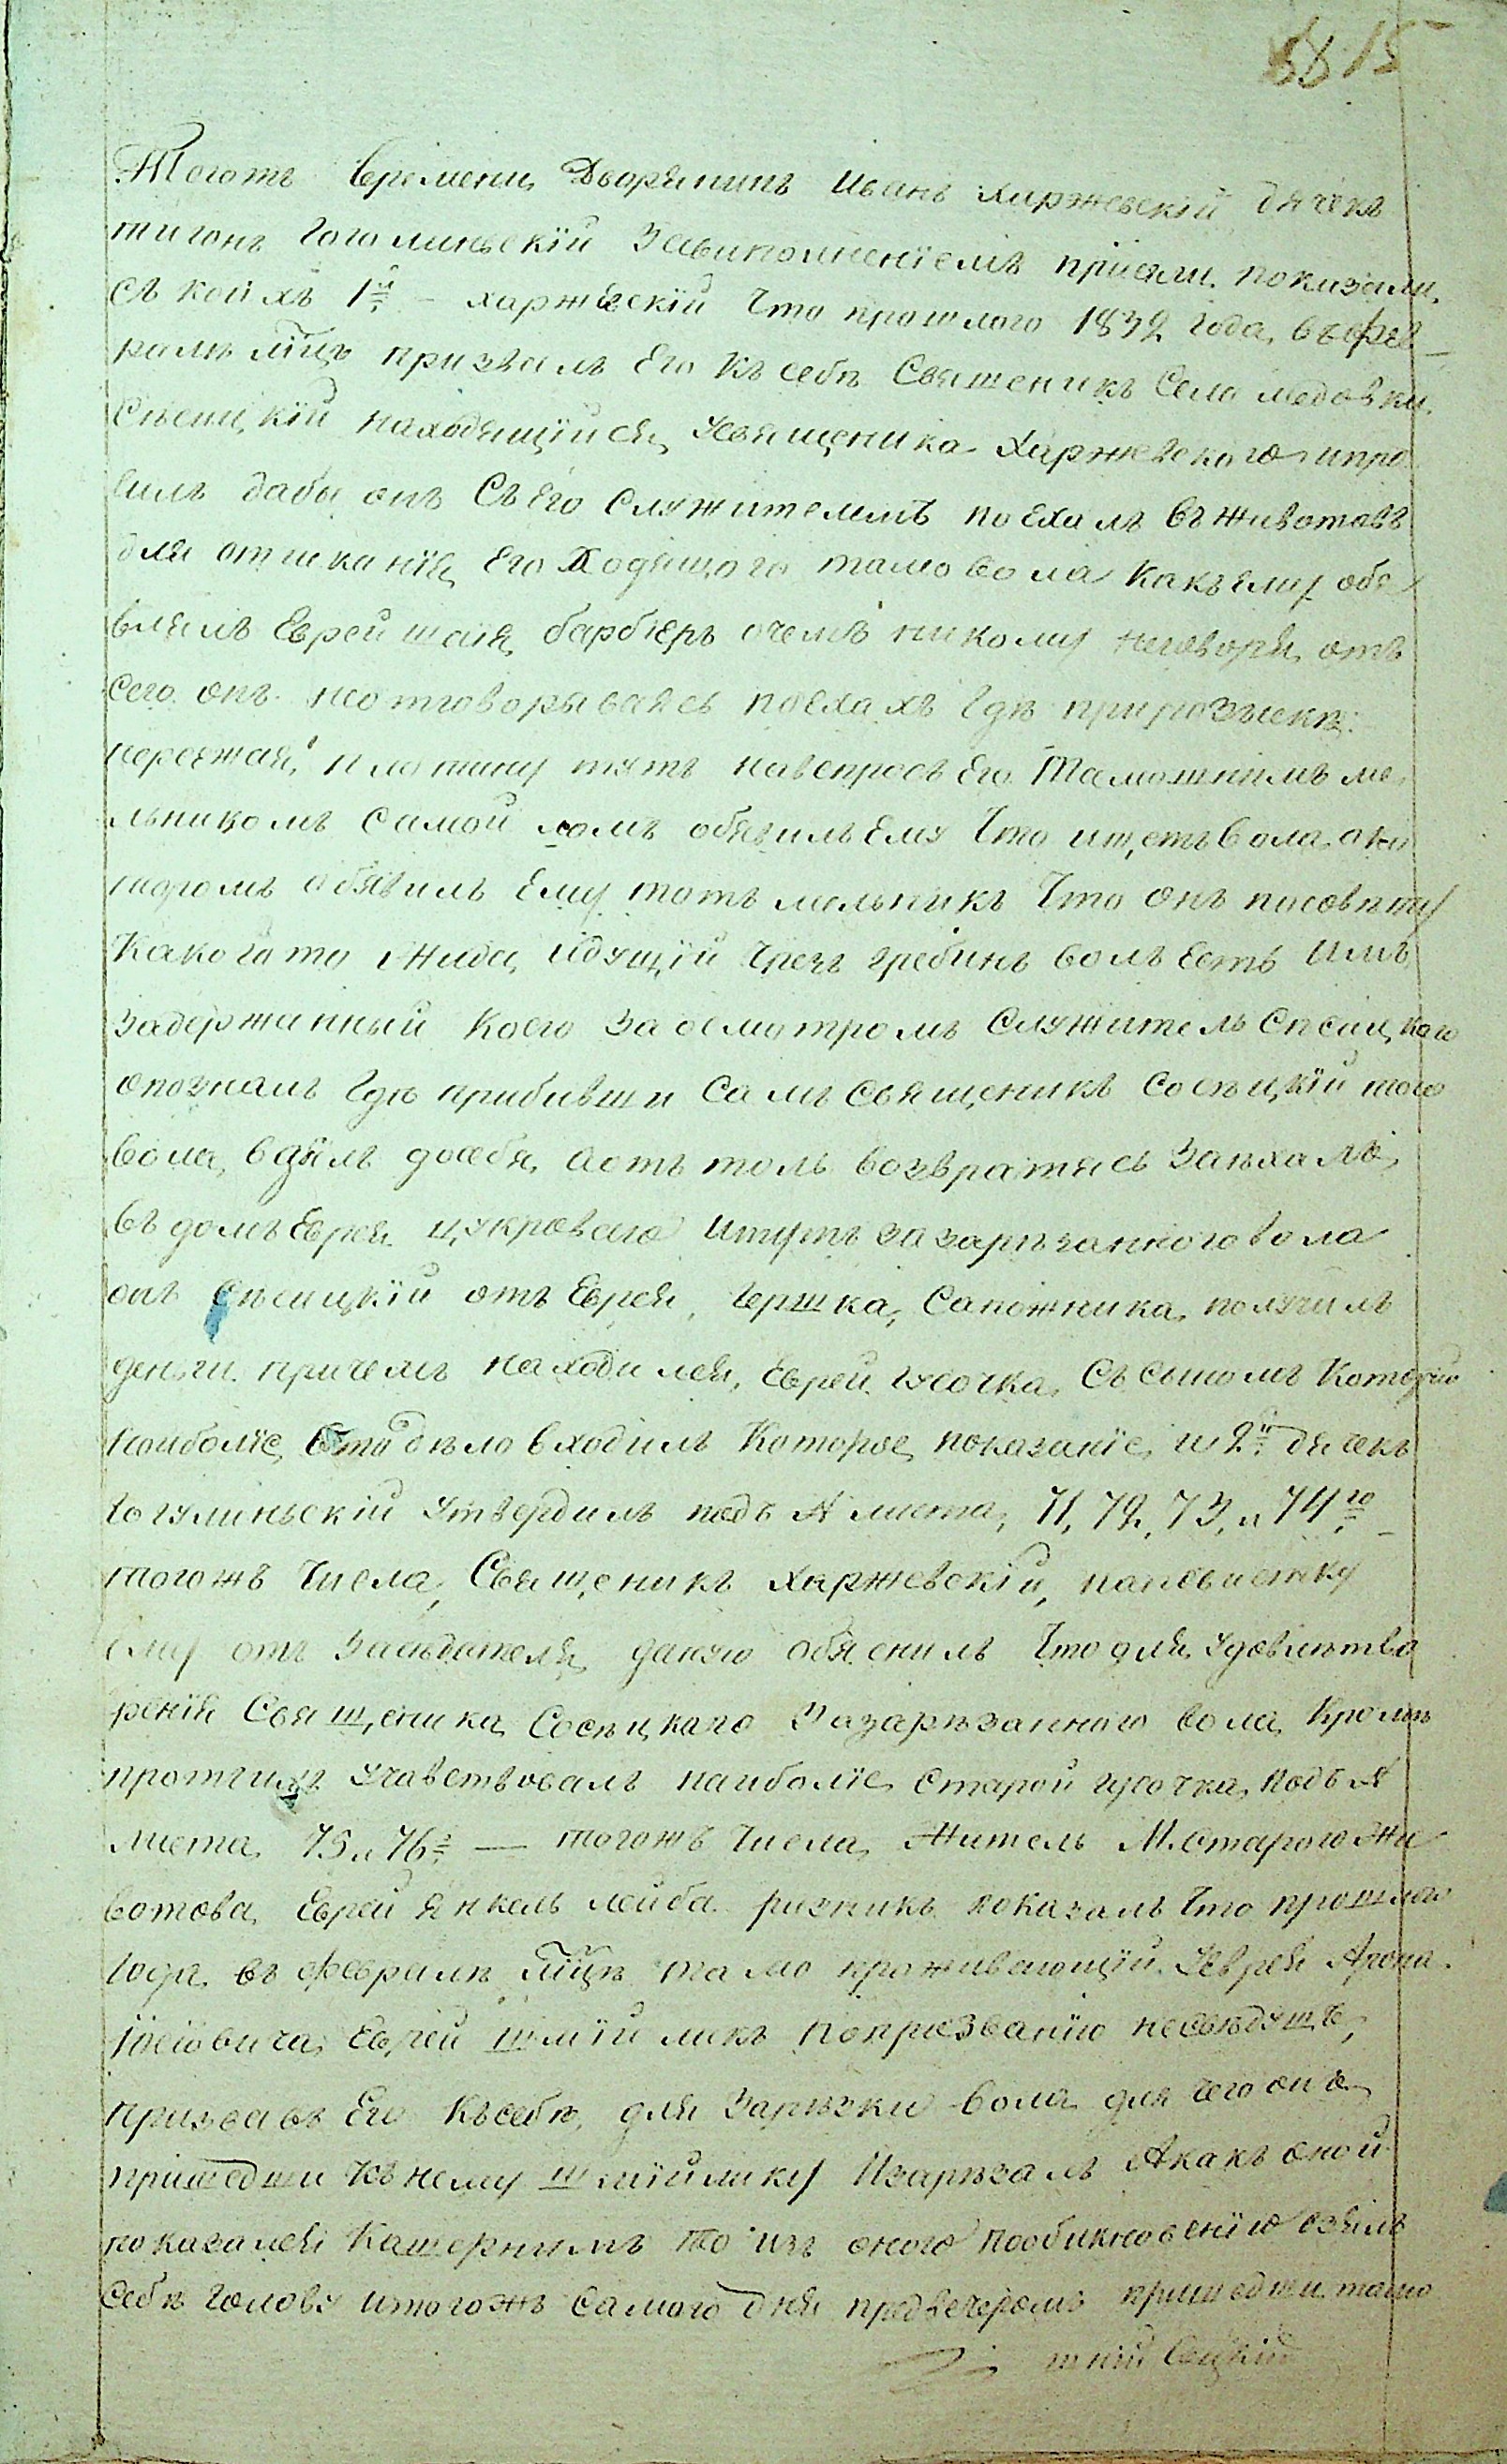 15
Тогожъ Времени Дворянинъ Иванъ Харжевскій дячекъ
тигонъ Гоголиньскій Завиполненіемъ прісяги показали,
съ коихъ 1й – харжевскій Что прошлого 1832 года, въ фев-
ралѣ мѣцѣ призвалъ Его къ себѣ Священикъ Села медовки
Сѣсицкій находящійся, Усвященика Харжевского ипро
силъ дабы онъ Съ Его Служителемъ поехалъ въ животовъ
для отисканія, Его Ходящого тамо вола какъ ему обя
влялъ Еврей шаія, барбіеръ очемъ никому неговоря, отъ
сего онъ неотговорываясь поехалъ Где прирозыске:
переежая, плотину тутъ навопросъ Его Тамошнимъ ме,
льникомъ самой омъ обявилъ Ему Что ищетъ вола, око
тором обявилъ Ему тотъ мельникъ Что онъ посовѣту
Какогото Жида, идущій Чрезъ гребинъ волъ Есть Имъ
Задержанный Коего За осмотромъ Служитель Сѣсицкого
опозналъ Гдѣ прибивши Самъ священикъ Сосѣцкій того
вола, вдялъ досебя, аотъ толь возвратясь Заехалъ,
въ домъ Еврея цукровего итутъ зазарѣзанного вола
онъ Сѣсицкій отъ Еврея, Гершка, Сапожника, получилъ
деньги причемъ находился, Еврей гусочка, Съ сыномъ Которій
наиболіе, въто дѣло входилъ Которое, показаніе, и 2й дячекъ
Гогулиньскій утвердилъ подъ А листа, 71, 72, 73, и 74го –
тогожъ Числа, Священикъ Харжевскій, наповѣстку
Ему отъ Засѣдателя, даную обяснилъ Что для, удовлетво
ренія Священика, Сосѣцкаго Зазарѣзанного вола, Кромѣ
протчихъ учавствовалъ наиболіе, старой гусочка, подъ А
листа, 75 и 76 — тогожъ Числа, Житель М. старого Жи
вотова, Еврей янкель лейба резникъ показалъ Что прошлого
Года, въ феврале мѣцѣ тамо проживающій Уеврея Арона
іосіовича, Еврей шміймикъ попрозванію несвѣдущъ,
призвавъ Его Къ себѣ, для Зарѣзки вола для чего онъ
пришедши Къ нему шміймику Изарѣзалъ Акакъ оной
показался Кашернимъ то изъ оного пообикновенію взялъ
себѣ голову итогожъ самого дня предвечеромъ пришедши тамо
шній Сецкій